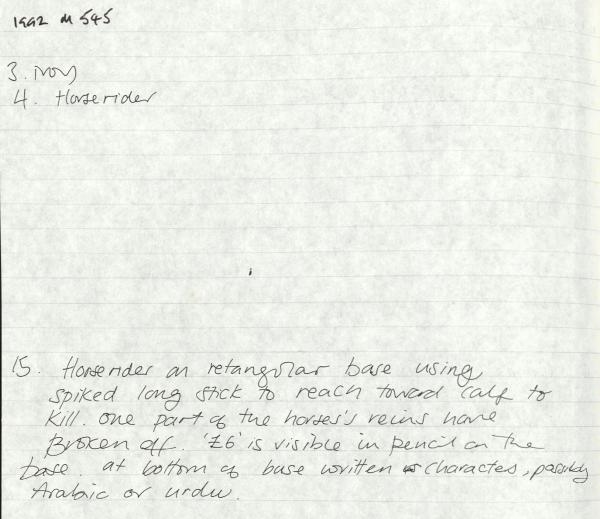 1992 M 545
3. ivory
4. Horserider
15. Horserider on retangolar base using
spiked long stick to reach toward calf to
kill. one part of the horses's reins have
Broken off. '£6' is visible in pencil on the
base. at bottom of base written characters, possibly
Arabic or urdu.